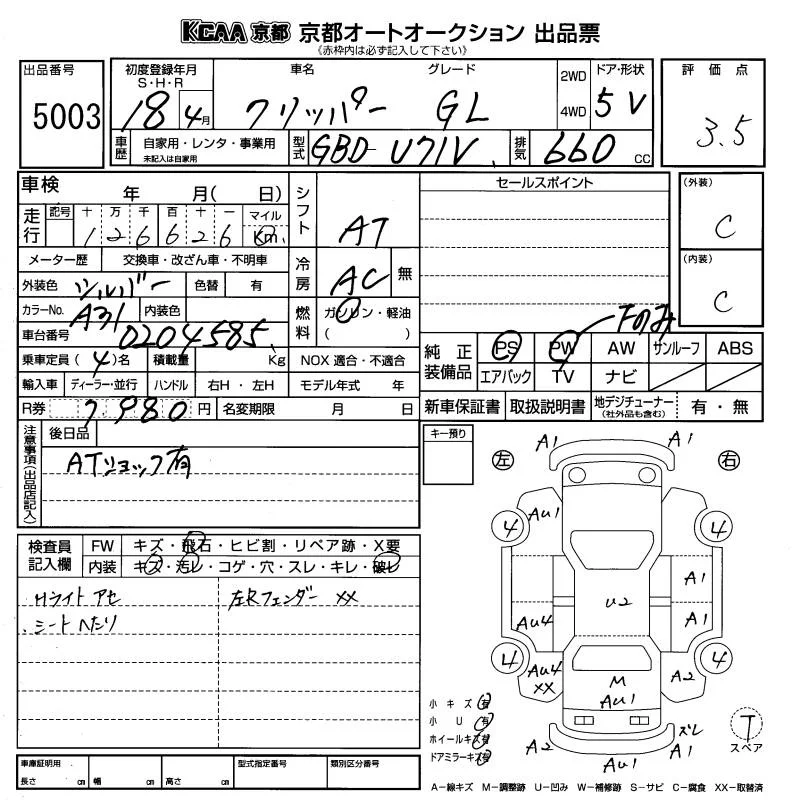 KCAA 京都 京都オートオークション 出品票
《赤枠内は必ず記入して下さい》
出品番号
5003
初度登録年月
S・H・R
18 4月
車名
クリッパー
グレード
GL
2WD
4WD
ドア・形状
5 V
評価点
3.5
車歴
自家用・レンタ・事業用
未記入は自家用
型式
GBD-U71V
排気
660 cc
車検 年 月( 日)
走行
記号 十 万 千 百 十 一 マイル
1 2 6 6 2 6 Km
メーター歴 交換車・改ざん車・不明車
外装色 シルバー 色替 有
カラーNo. A31 内装色
車台番号 0204585
乗車定員 (4)名 積載量 Kg
輸入車 ディーラー・並行 ハンドル 右H・左H
R券 7,980 円 名変期限 月 日
シフト AT
冷房 AC 無
燃料 ガソリン・軽油
( )
NOX 適合・不適合
モデル年式 年
セールスポイント
(外装)
C
(内装)
C
Fのみ
純正装備品
PS PW AW サンルーフ ABS
エアバック TV ナビ
新車保証書 取扱説明書 地デジチューナー (社外品も含む) 有・無
注意事項(出品店記入)
後日品
ATショック有
キー預り
検査員記入欄
FW キズ・飛石・ヒビ割・リペア跡・X要
内装 キズ・汚レ・コゲ・穴・スレ・キレ・破レ
Hライト アセ
シート へたり
左Rフェンダー XX
左 右
A1 A1
AU1
4 4
A1
U2
AU4 A1
4 4
AU4
XX
M
AU1
A2
A2 AU1 ズレ
A1
小キズ 有
小U 有
ホイールキズ 有
ドアミラーキズ 有
T
スペア
A−線キズ M−調整跡 U−凹み W−補修跡 S−サビ C−腐食 XX−取替済
車庫証明用
長さ cm 幅 cm 高さ cm
型式指定番号
類別区分番号